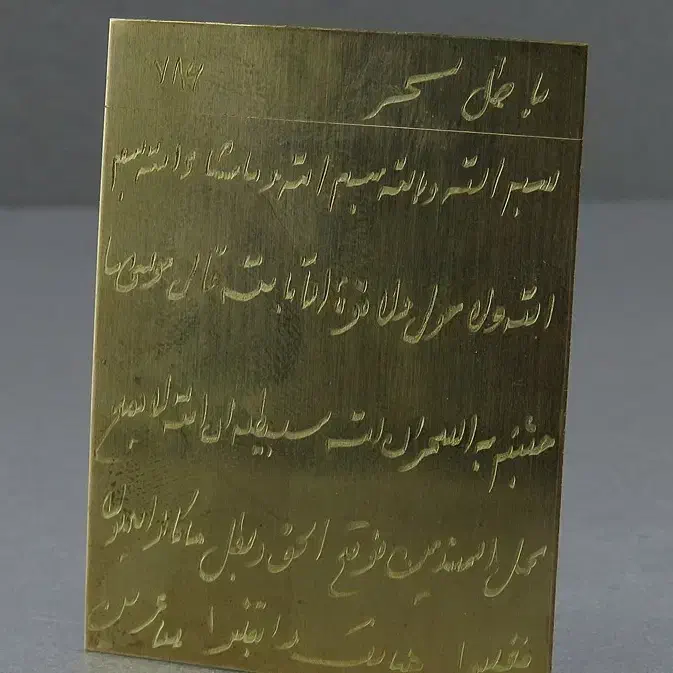 باطل سحر ٧٨٦
بسم الله وبالله بسم الله وماشاء الله بسم
الله ولا حول ولا قوة الا بالله قال موسى ما
جئتم به السحر ان الله سیبطله ان الله لا یصلح
عمل المفسدین فوقع الحق وبطل ما کانوا یعملون
فغلبوا هنالک وانقلبوا صاغرین